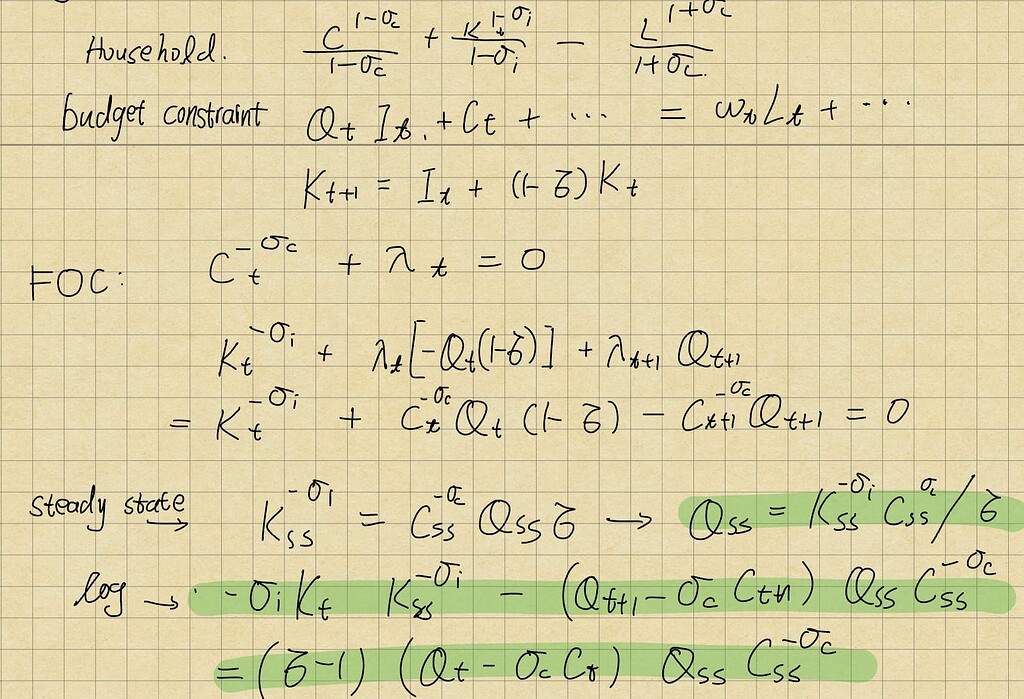 Household. C^{1-σc}/(1-σc) + K^{1-σi}/(1-σi) - L^{1+σc}/(1+σc)
budget constraint Qt It + Ct + ... = wtLt + ...
Kt+1 = It + (1-δ)Kt
FOC: Ct^{-σc} + λt = 0
Kt^{-σi} + λt[-Qt(1-δ)] + λt+1 Qt+1
= Kt^{-σi} + Ct^{-σc} Qt (1-δ) - Ct+1^{-σc} Qt+1 = 0
steady state → Kss^{-σi} = Css^{-σc} Qss δ → Qss = Kss^{-σi} Css^{σc}/δ
log → -σi Kt Kss^{-σi} - (Qt+1 - σc Ct+1) Qss Css^{-σc}
= (δ-1) (Qt - σc Ct) Qss Css^{-σc}